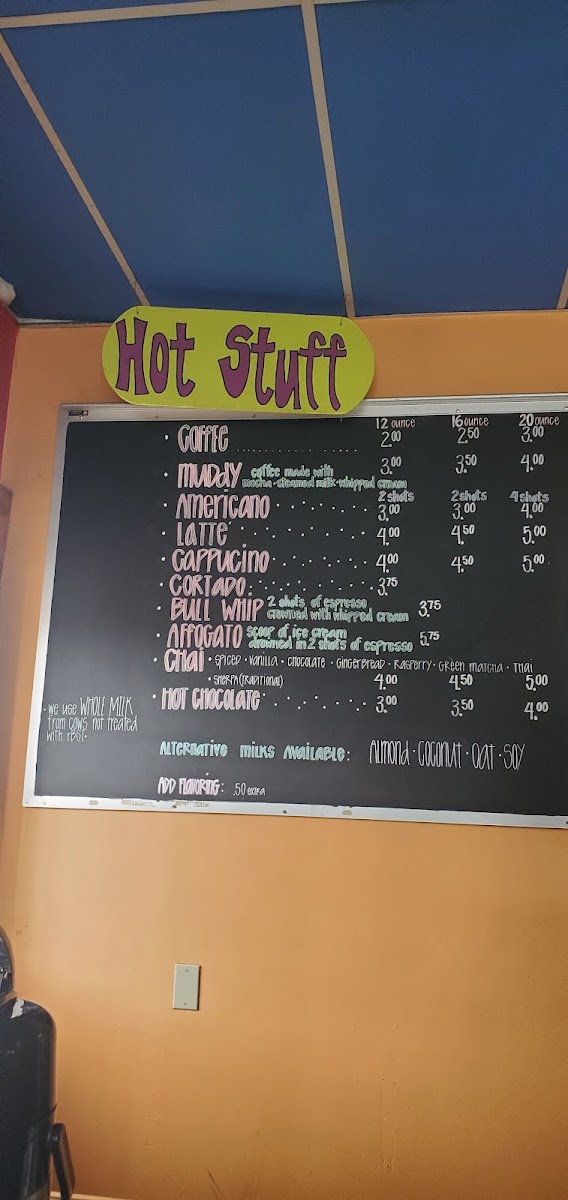 Hot Stuff
12 ounce 16 ounce 20 ounce
• COFFE .................... 2.00 2.50 3.00
• MUDDY coffee made with mocha•steamed milk•whipped cream 3.00 3.50 4.00
2 shots 2 shots 4 shots
• AMERICANO . . . . . . . 3.00 3.00 4.00
• LATTE . . . . . . . . . 4.00 4.50 5.00
• CAPPUCINO . . . . . . . 4.00 4.50 5.00
• CORTADO . . . . . . . . 3.75
• BULL WHIP 2 shots of espresso crowned with whipped cream 3.75
• AFFOGATO scoop of ice cream drowned in 2 shots of espresso 5.75
• CHAI • SPICED • VANILLA • CHOCOLATE • GINGERBREAD • RASPERRY • GREEN MATCHA • THAI
• SHERPA (TRADITIONAL) 4.00 4.50 5.00
• HOT CHOCOLATE . . . . . . . 3.00 3.50 4.00
• we use WHOLE MILK
from cows not treated
with rBST•
ALTERNATIVE MILKS AVAILABLE: ALMOND • COCONUT • OAT • SOY
ADD FLAVORING: .50 extra